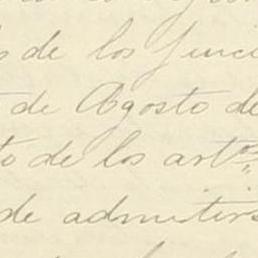 de los
de Agosto de
to de los artos
de admitirs